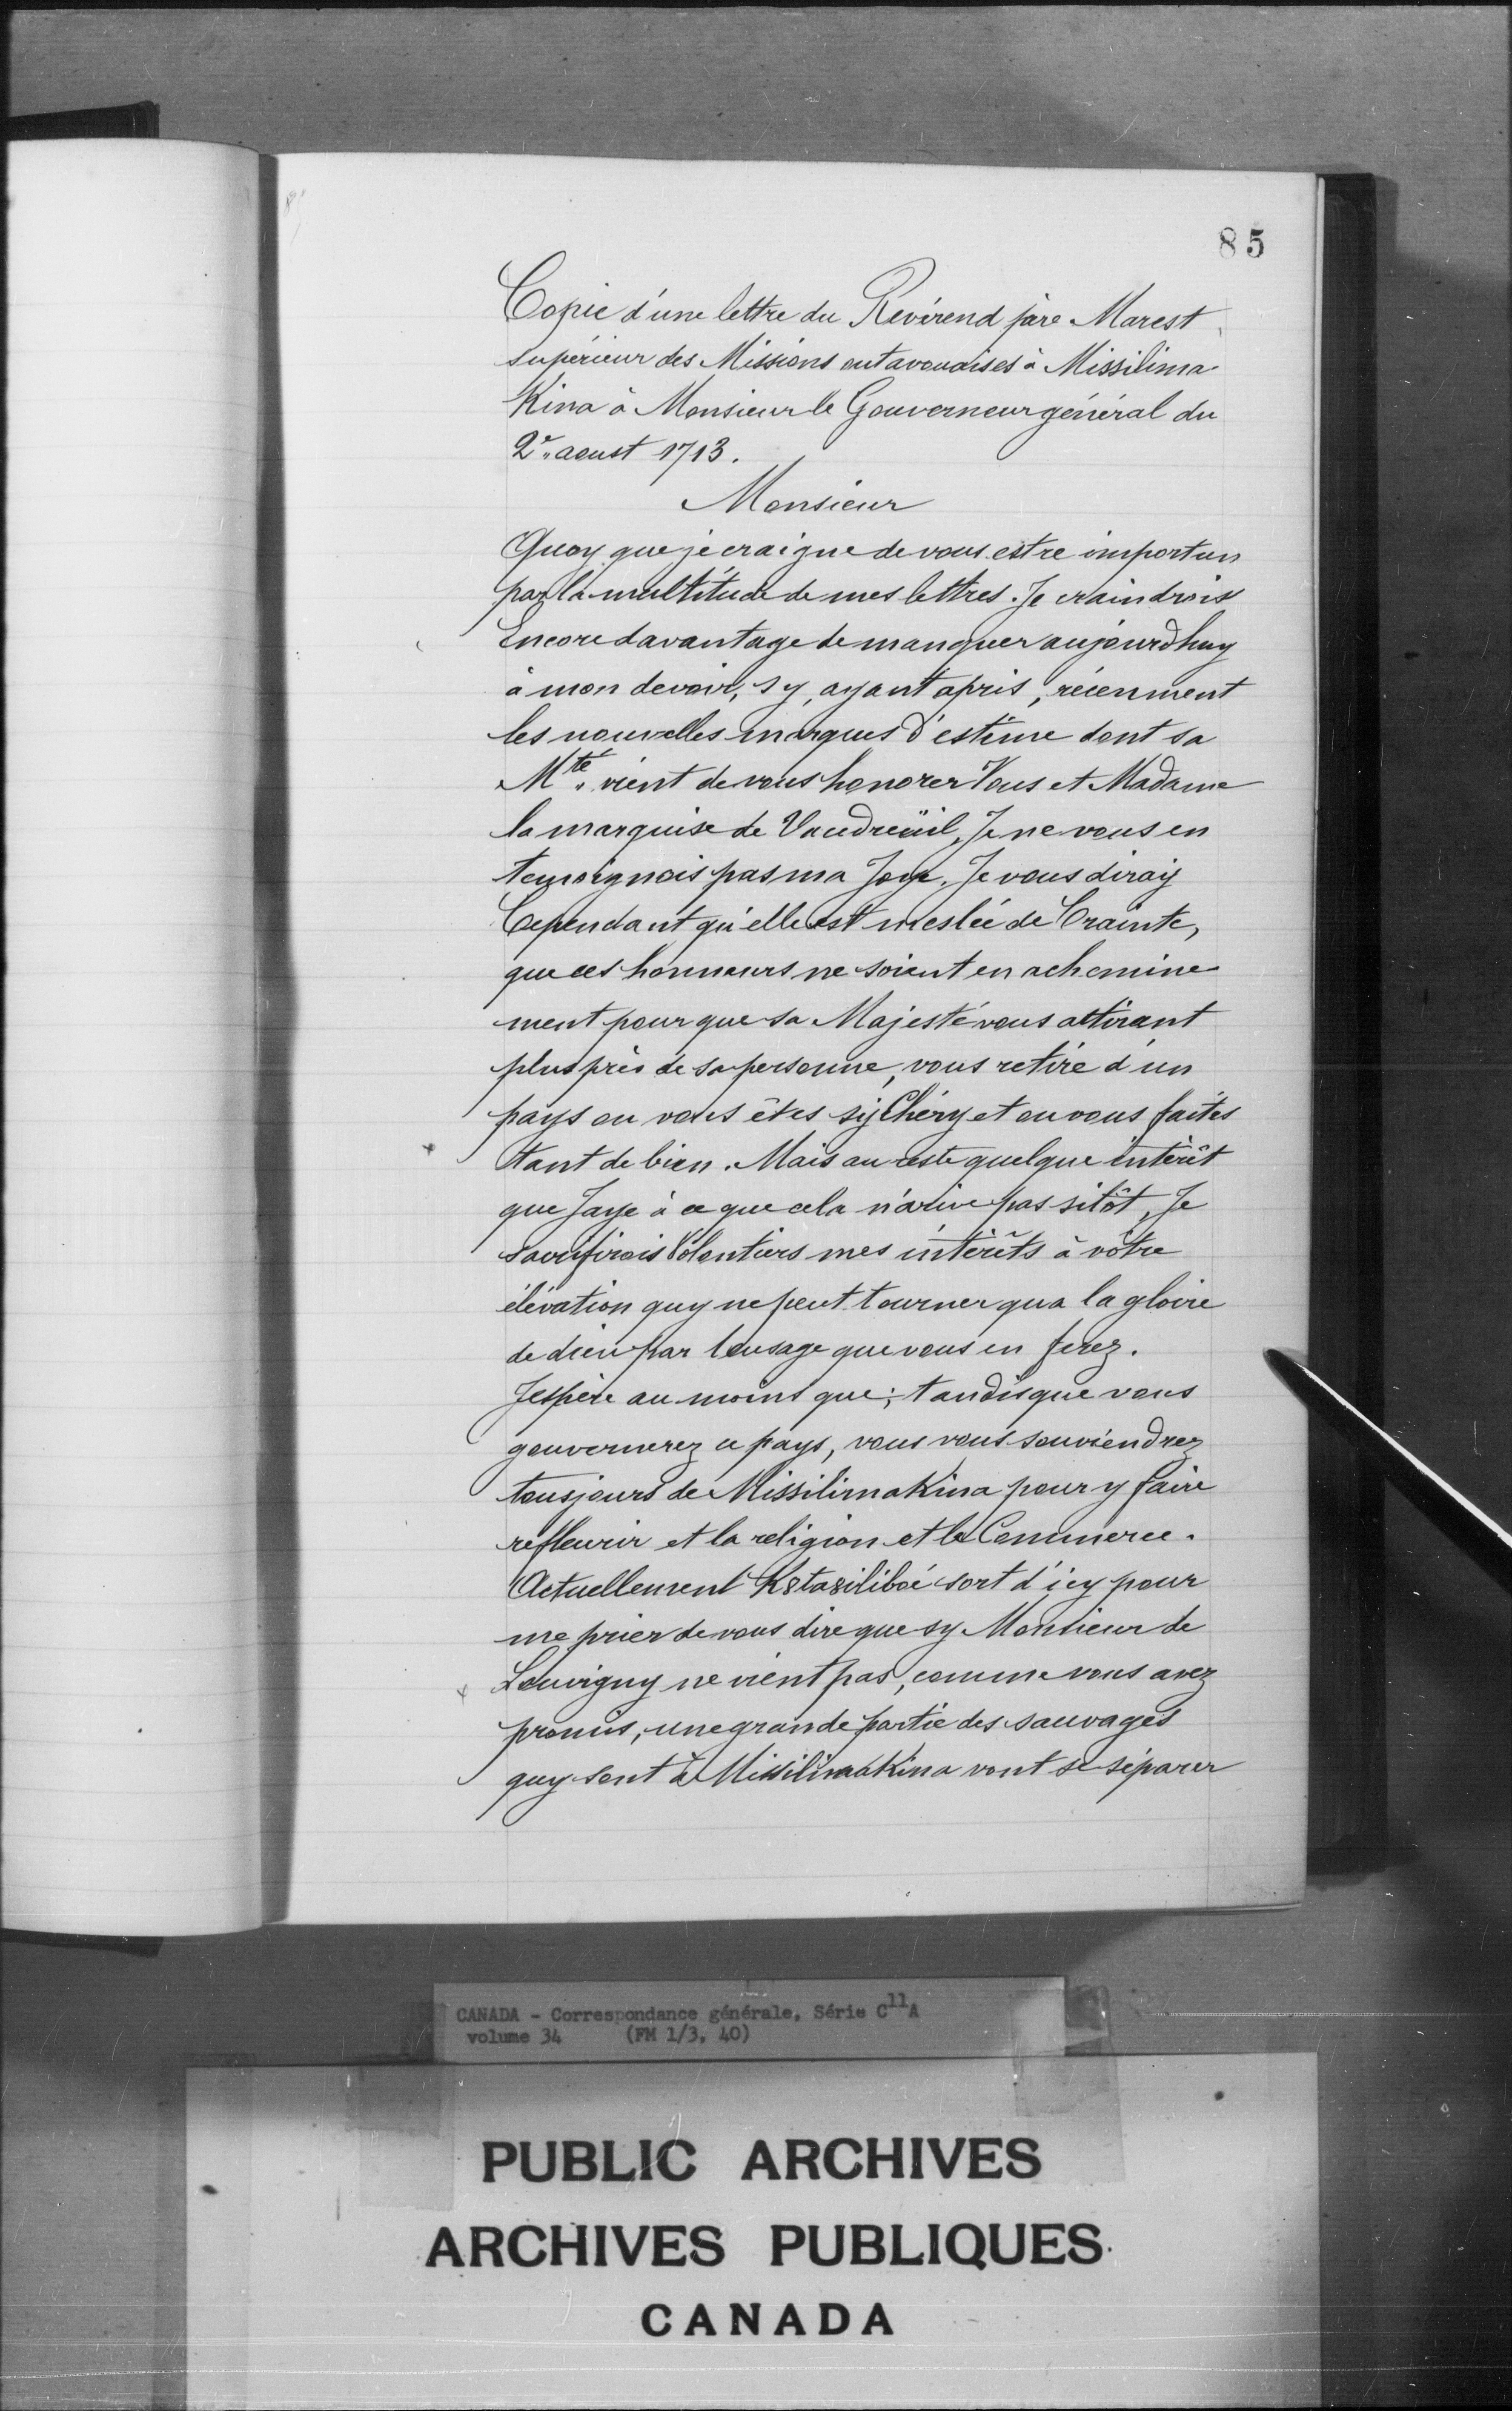 85
Copie d'une lettre du Révérend père Marest
supérieur des Missions outavouaises à Missilima
Kina à Monsieur le Gouverneur général du
2e. aoust 1713.
Monsieur
Quoy que je craigne de vous estre importun
par la multitude de mes lettres. Je craindrois
Encore davantage de manquer aujourdhuy
à mon devoir, sy, ayant apris, récemment
les nouvelles marques d'estime dont sa
Mté. vient de vous honorer Vous et Madame
la marquise de Vaudreüil, Je ne vous en
temoignois pas ma Joye. Je vous diray
Cependant qu'elle est meslée de Crainte,
que ces honneurs ne soient en achemine
ment pour que sa Majesté vous attirant
plus près de sa personne, vous retire d'un
pays ou vous êtes sy Chéry et ou vous faites
tant de bien. Mais au reste quelque intérêt
que Jaye à ce que cela n'arive pas sitôt, Je
sacrifirois Volontiers mes intérêts à vôtre
élévation quy ne peut tourner qua la gloire
de dieu par leusage que vous en ferez.
Jespère au moins que; tandisque vous
gouvernerez ce pays, vous vous souviendrez
tousjours de Missilimakina pour y faire
refleurir et la religion et le Commerce.
Actuellement K8ta8iliboé sort d'icy pour
me prier de vous dire que sy Monsieur de
Louvigny ne vient pas, comme vous avez
promis, une grande partie des sauvages
quy sont à Missilimakina vont se séparer
CANADA - Correspondance générale, Série C11A
volume 34 (FM 1/3, 40)
PUBLIC ARCHIVES
ARCHIVES PUBLIQUES
CANADA